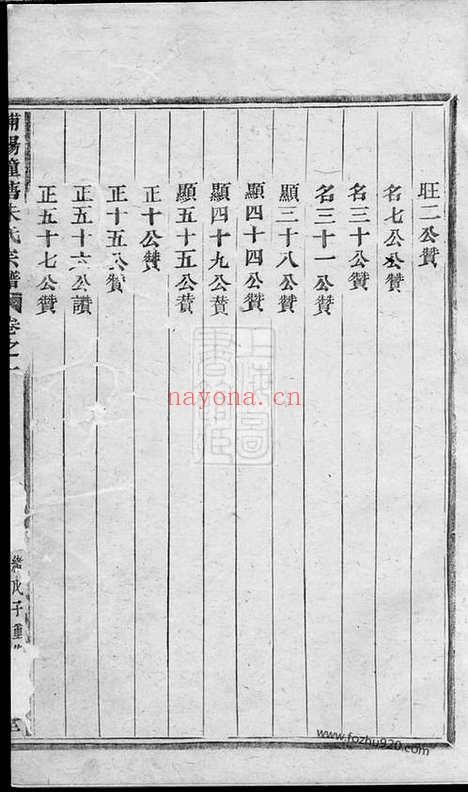 旺二公贊
名七公公贊
名三十公贊
名三十一公贊
顯三十八公贊
顯四十四公贊
顯四十九公贊
顯五十五公贊
正十公贊
正十五公贊
正五十六公讃
正五十七公贊
氏宗譜
卷之
上海圖書館藏
nayona.cn
www.fozhu920.com